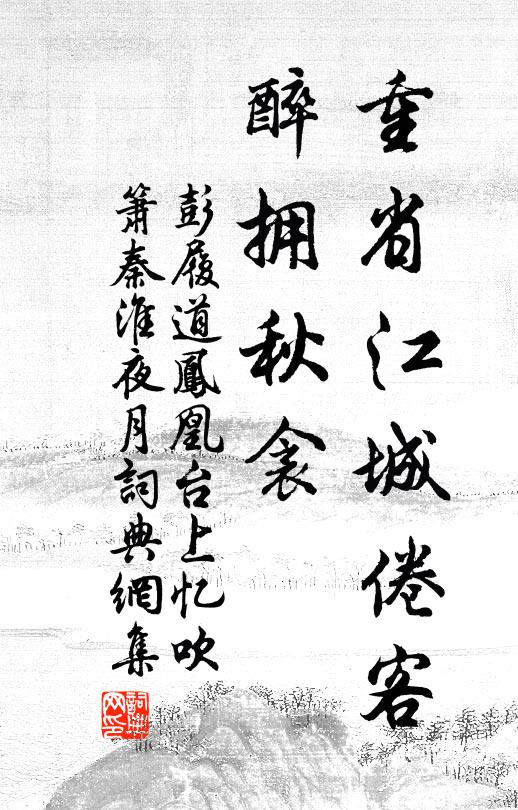 重省江城倦客
醉拥秋衾
彭履道鳳凰台上忆吹
箫秦淮夜月詞典網集